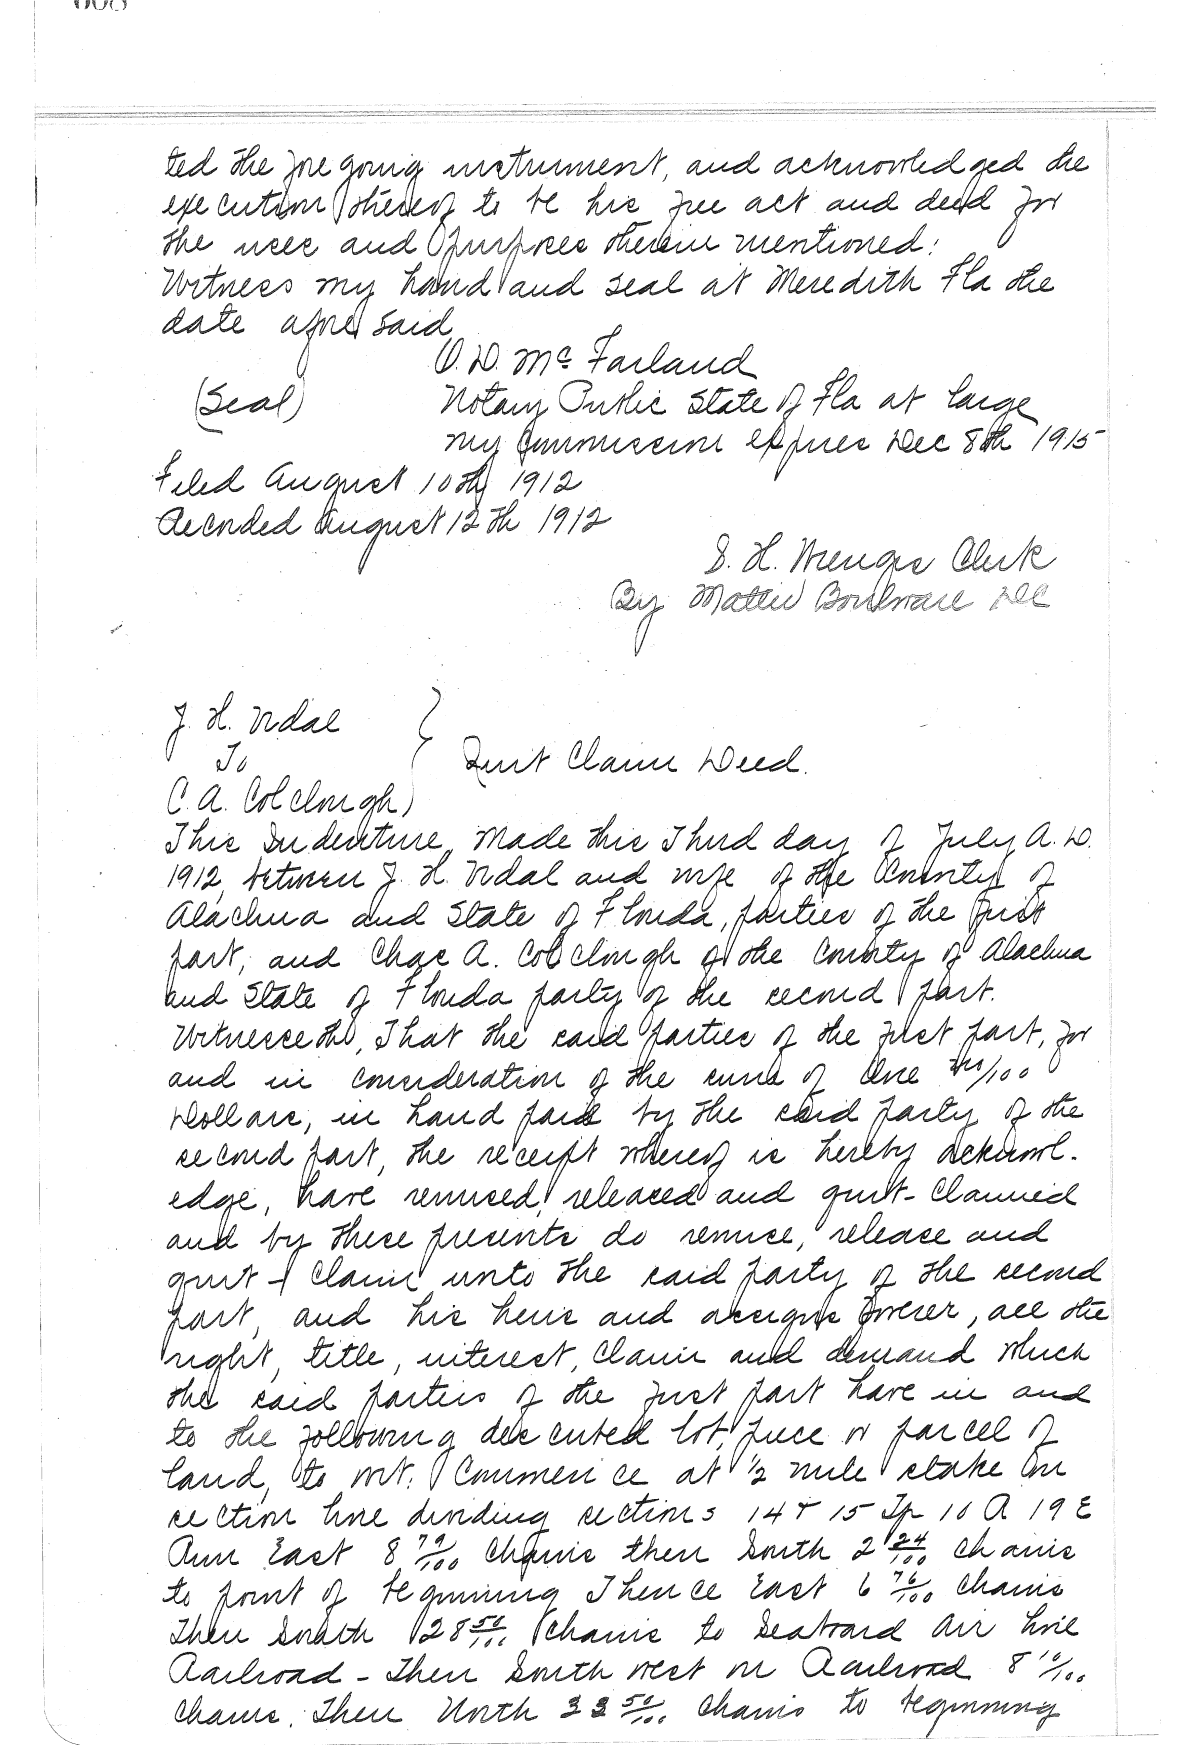 ted the foregoing instrument, and acknowledged the
execution thereof to be his free act and deed for
the uses and purposes therein mentioned:
Witness my hand and seal at Meredith Fla the
date afore said
O. D. McFarland
(Seal) Notary Public State of Fla at large
my Commission expires Dec 8th 1915
Filed August 10th 1912
Recorded August 12th 1912
S. H. Wienges Clerk
By Mattie Boulware DC
J. H. Vidal
To
Quit Claim Deed.
C. A. Colclough
This Indenture, Made this Third day of July A. D.
1912, between J. H. Vidal and wife of the County of
Alachua and State of Florida, parties of the first
part, and Chas A. Colclough of the County of Alachua
and State of Florida party of the second part.
Witnesseth, That the said parties of the first part, for
and in consideration of the sum of One no/100
Dollars, in hand paid by the said party of the
second part, the receipt whereof is hereby acknowl-
edge, have remised, released and quit-claimed
and by these presents do remise, release and
quit-claim unto the said party of the second
part, and his heirs and assigns forever, all the
right, title, interest, claim and demand which
the said parties of the first part have in and
to the following described lot, piece or parcel of
land, to wit: Commence at 1/2 mile stake on
section line dividing sections 14 + 15 Tp 10 R 19 E
Run East 8 79/100 chains then South 2 24/100 chains
to point of beginning Thence East 6 76/100 chains
Then South 28 50/100 chains to Seaboard Air Line
Railroad - Then South west on Railroad 8 10/100
chains. Then North 33 50/100 chains to beginning